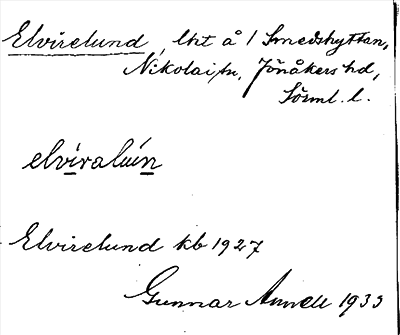 Elvirelund, lht å 1 Smedshyttan,
Nikolai sn, Jönåkers hd,
Sörml. l.
elviralun
Elvirelund kb 1927
Gunnar Arnell 1933